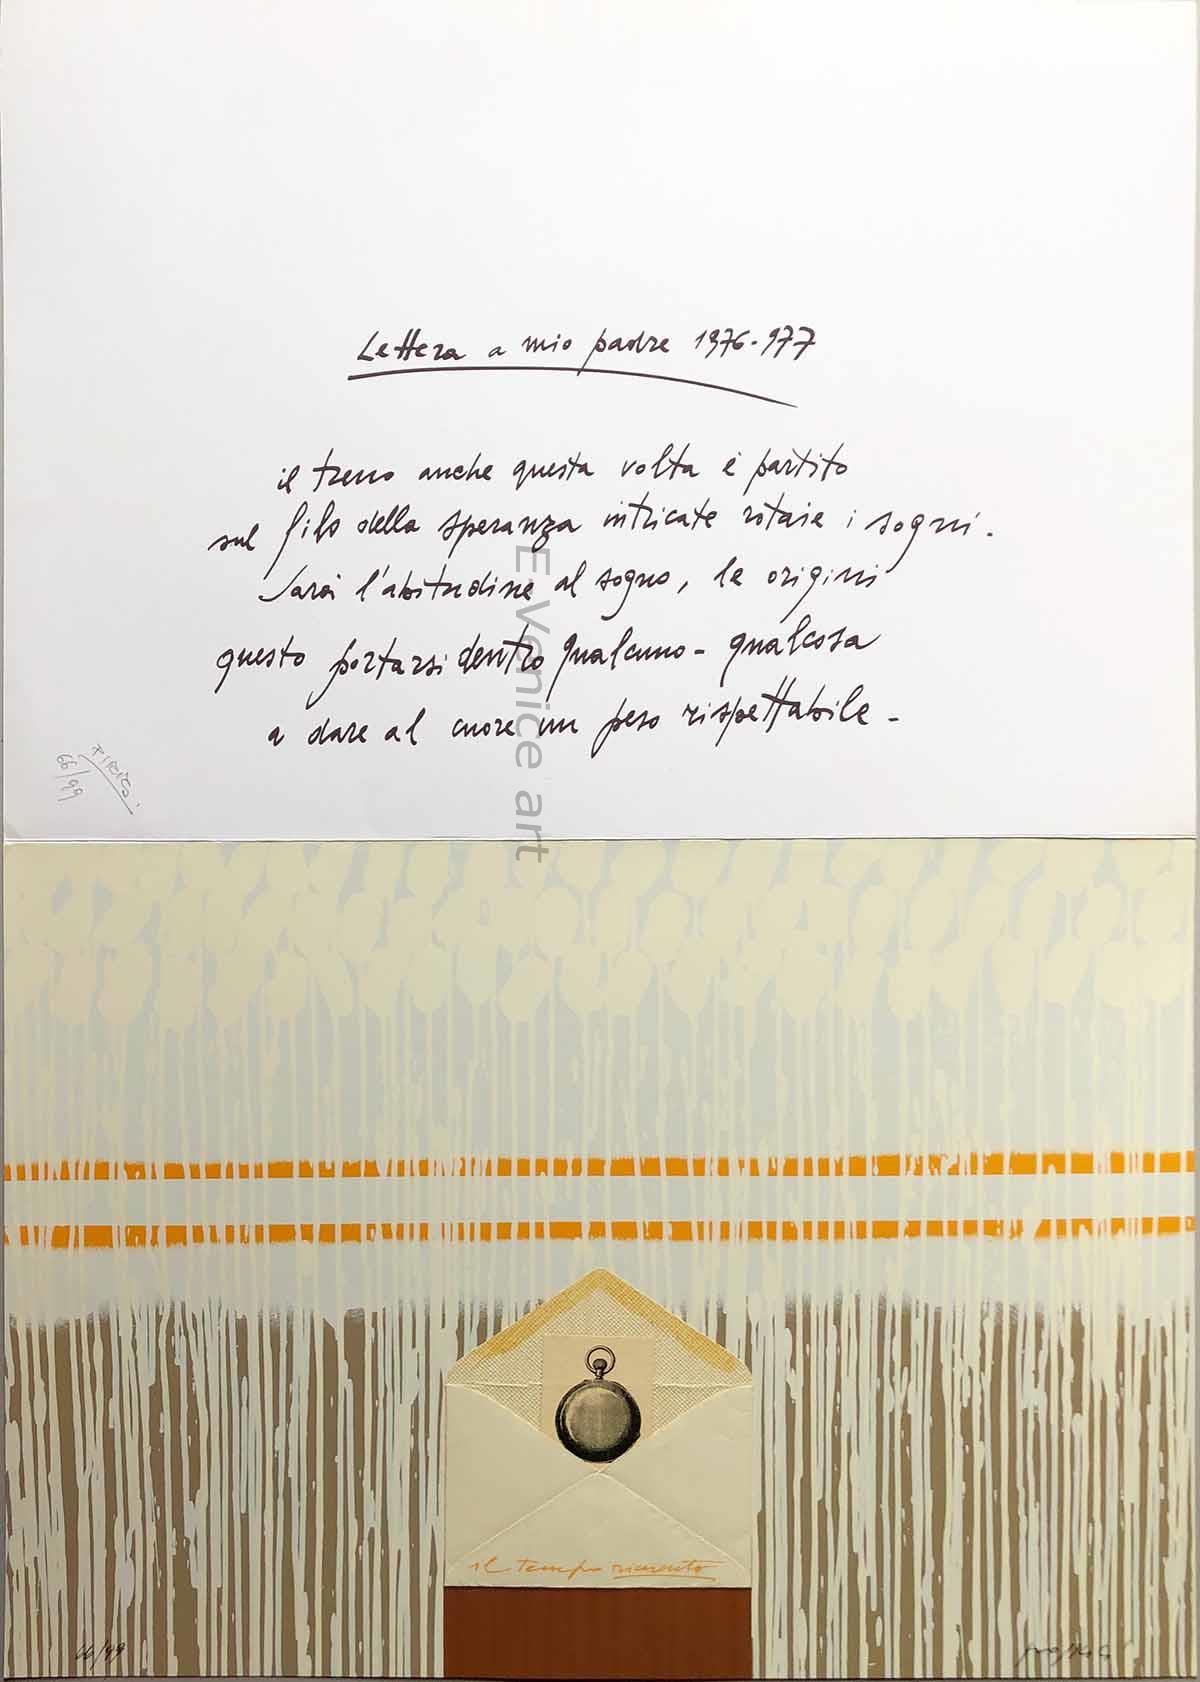 Lettera a mio padre 1976-977
il treno anche questa volta è partito
sul filo della speranza intricate rotaie i sogni.
Sarà l'abitudine al sogno, le origini
questo portarsi dentro qualcuno - qualcosa
a dare al cuore un peso rispettabile -
66/99
E Venice art
il tempo
66/99